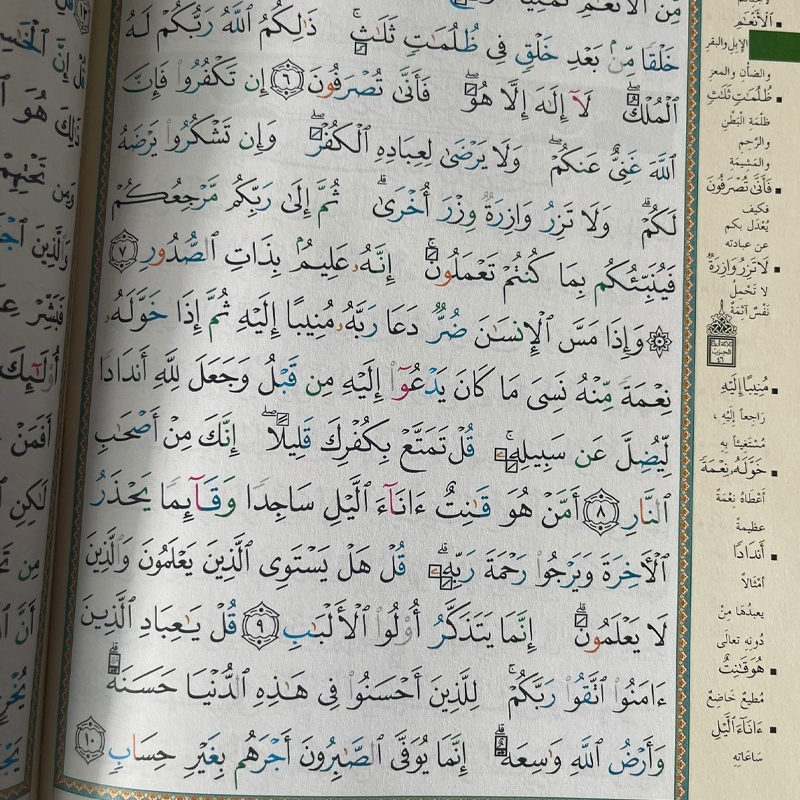 مِّنَ ٱلۡأَنۡعَٰمِ
خَلۡقٗا مِّنۢ بَعۡدِ خَلۡقٖ فِي ظُلُمَٰتٖ ثَلَٰثٖۚ ذَٰلِكُمُ ٱللَّهُ رَبُّكُمۡ لَهُ
ٱلۡمُلۡكُۖ لَآ إِلَٰهَ إِلَّا هُوَۖ فَأَنَّىٰ تُصۡرَفُونَ ٦ إِن تَكۡفُرُواْ فَإِنَّ
ٱللَّهَ غَنِيٌّ عَنكُمۡۖ وَلَا يَرۡضَىٰ لِعِبَادِهِ ٱلۡكُفۡرَۖ وَإِن تَشۡكُرُواْ يَرۡضَهُ
لَكُمۡۗ وَلَا تَزِرُ وَازِرَةٞ وِزۡرَ أُخۡرَىٰۗ ثُمَّ إِلَىٰ رَبِّكُم مَّرۡجِعُكُمۡ
فَيُنَبِّئُكُم بِمَا كُنتُمۡ تَعۡمَلُونَۚ إِنَّهُۥ عَلِيمُۢ بِذَاتِ ٱلصُّدُورِ ٧
۞ وَإِذَا مَسَّ ٱلۡإِنسَٰنَ ضُرّٞ دَعَا رَبَّهُۥ مُنِيبًا إِلَيۡهِ ثُمَّ إِذَا خَوَّلَهُۥ
نِعۡمَةٗ مِّنۡهُ نَسِيَ مَا كَانَ يَدۡعُوٓاْ إِلَيۡهِ مِن قَبۡلُ وَجَعَلَ لِلَّهِ أَندَادٗا
لِّيُضِلَّ عَن سَبِيلِهِۦۚ قُلۡ تَمَتَّعۡ بِكُفۡرِكَ قَلِيلًا إِنَّكَ مِنۡ أَصۡحَٰبِ
ٱلنَّارِ ٨ أَمَّنۡ هُوَ قَٰنِتٌ ءَانَآءَ ٱلَّيۡلِ سَاجِدٗا وَقَآئِمٗا يَحۡذَرُ
ٱلۡأٓخِرَةَ وَيَرۡجُواْ رَحۡمَةَ رَبِّهِۦۗ قُلۡ هَلۡ يَسۡتَوِي ٱلَّذِينَ يَعۡلَمُونَ وَٱلَّذِينَ
لَا يَعۡلَمُونَۗ إِنَّمَا يَتَذَكَّرُ أُوْلُواْ ٱلۡأَلۡبَٰبِ ٩ قُلۡ يَٰعِبَادِ ٱلَّذِينَ
ءَامَنُواْ ٱتَّقُواْ رَبَّكُمۡۚ لِلَّذِينَ أَحۡسَنُواْ فِي هَٰذِهِ ٱلدُّنۡيَا حَسَنَةٞۗ
وَأَرۡضُ ٱللَّهِ وَٰسِعَةٌۗ إِنَّمَا يُوَفَّى ٱلصَّٰبِرُونَ أَجۡرَهُم بِغَيۡرِ حِسَابٖ ١٠
ٱلۡأَنۡعَٰمِ
الإبل والبقر
والضأن والمعز
ظُلُمَٰتٖ ثَلَٰثٖ
ظلمة البَطْنِ
والرَّحِم
والمَشِيمَةِ
فَأَنَّىٰ تُصۡرَفُونَ
فكيف
يُعْدَل بكم
عن عبادته
لَا تَزِرُ وَازِرَةٞ
لا تَحْمِلُ
نَفْسٌ آثِمَةٌ
مُنِيبًا إِلَيۡهِ
رَاجعاً إليْهِ،
مُسْتَغيثاً به
خَوَّلَهُۥ نِعۡمَةٗ
أعْطاهُ نِعْمَةً
عظيمةً
أَندَادٗا
أمْثالاً
يعبدُهَا مِنْ
دُونِه تعالى
هُوَ قَٰنِتٌ
مُطيعٌ خَاضِعٌ
ءَانَآءَ ٱلَّيۡلِ
سَاعَاتِهِ